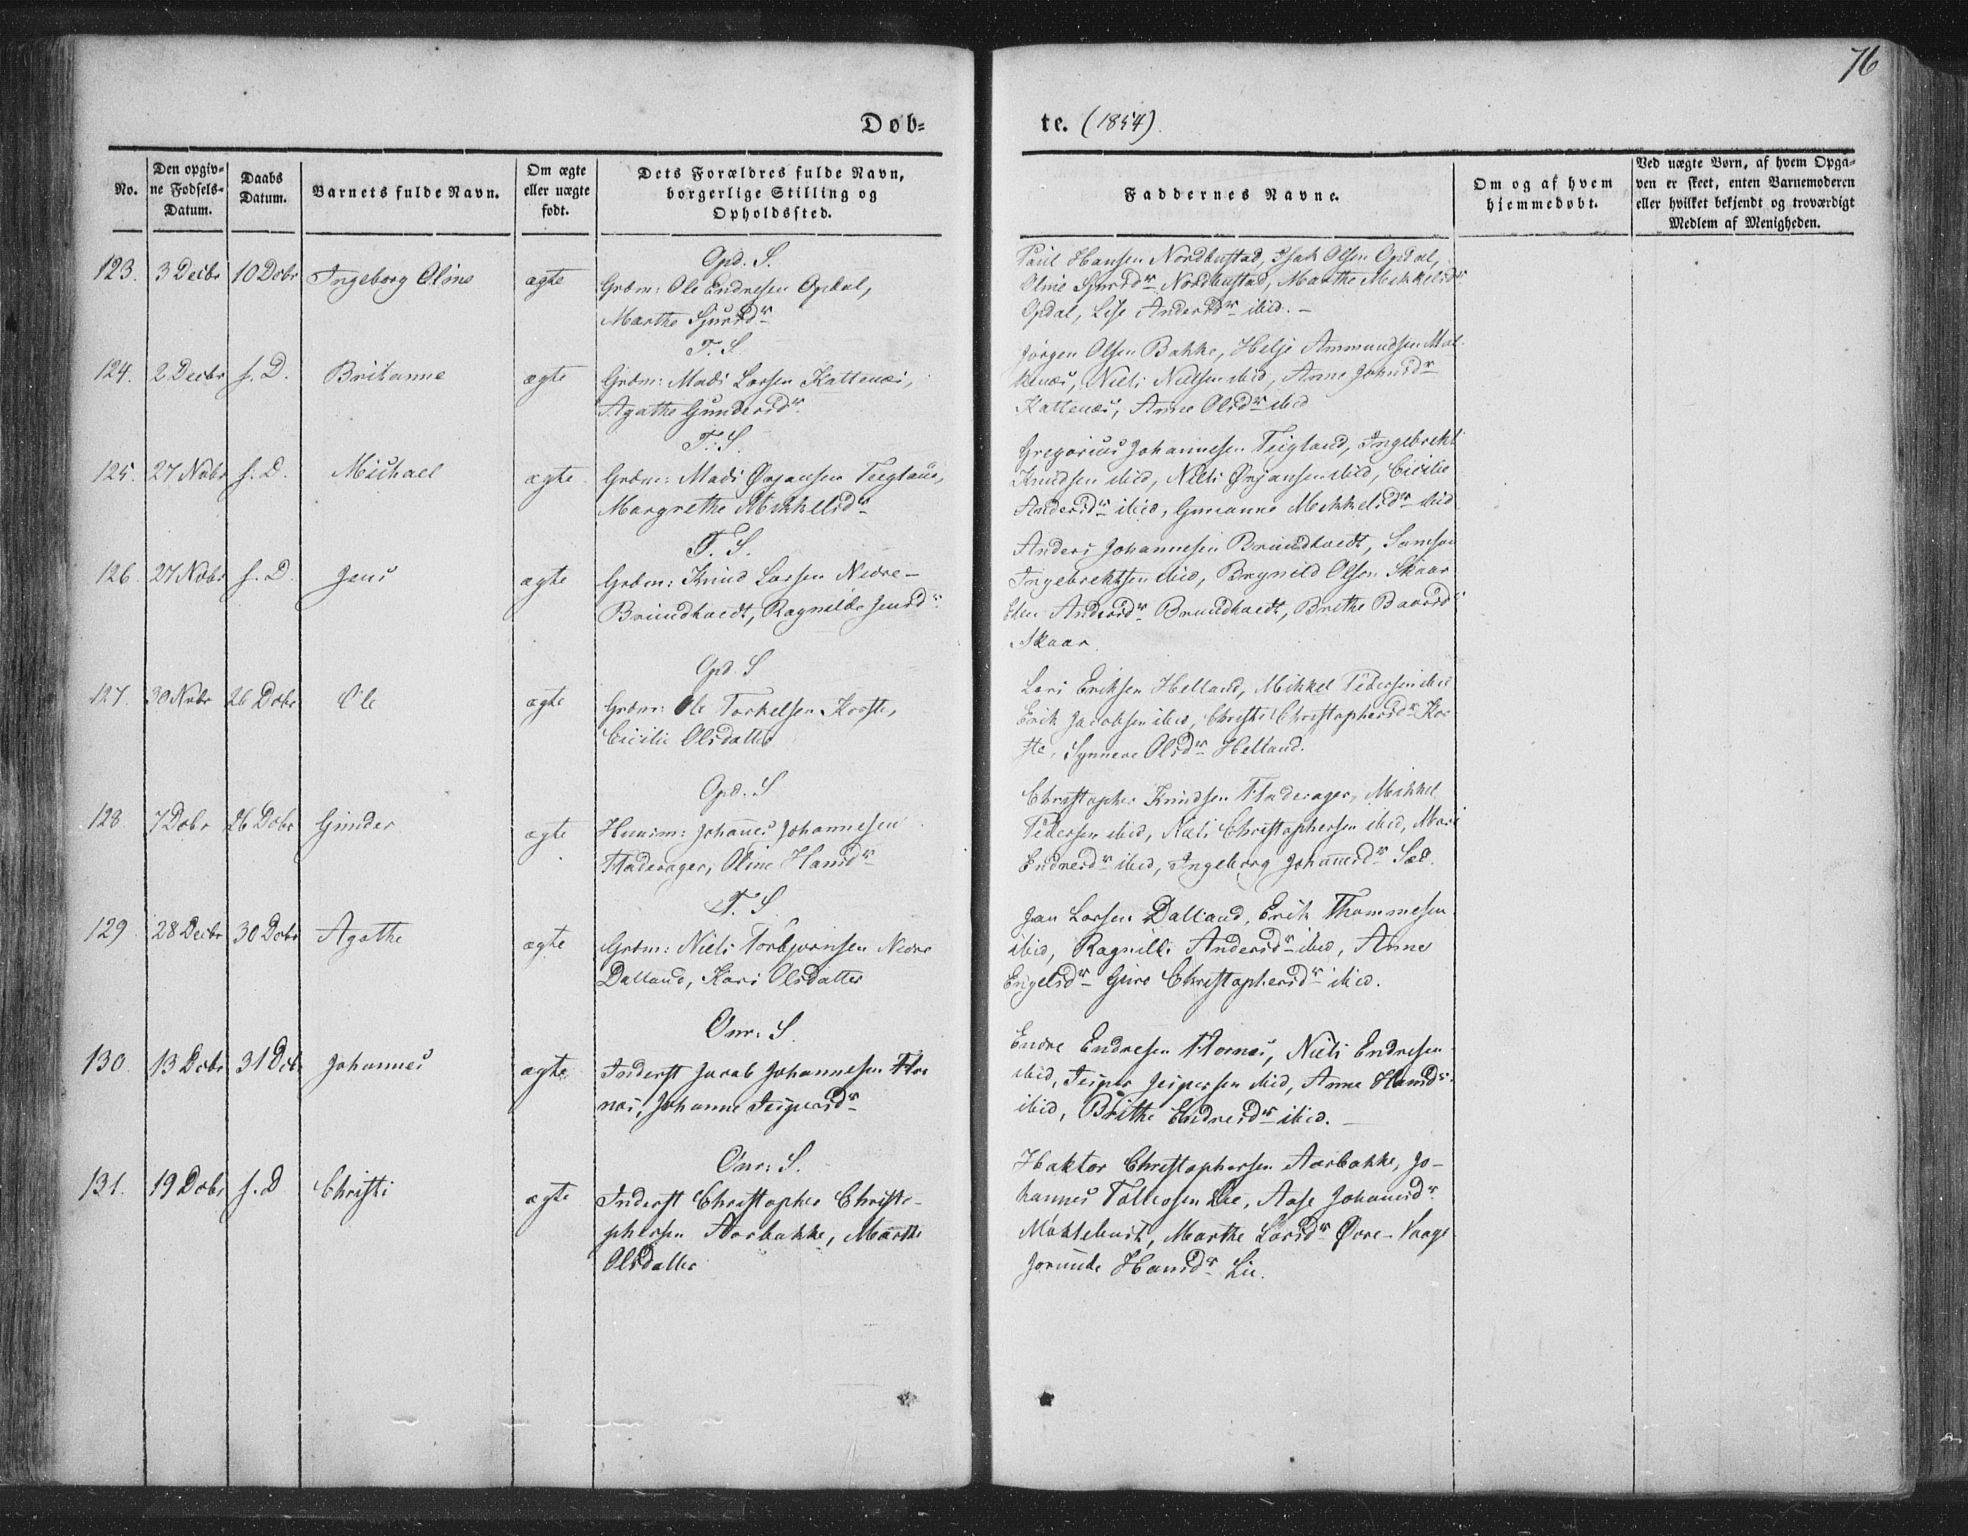 76
Døb-
te. (1854)
No.
Den opgiv-
ne Fødsels-
Datum.
Daabs
Datum.
Barnets fulde Navn.
Om ægte
eller uægte
født.
Dets Forældres fulde Navn,
borgerlige Stilling og
Opholdssted.
Faddernes Navne.
Om og af hvem
hjemmedøbt.
Ved uægte Børn, af hvem Opga-
ven er skeet, enten Barnemoderen
eller hvilket bekjendt og troværdigt
Medlem af Menigheden.
Opd. S.
123. 3 Decbr 10 Dcbr Ingeborg Oline ægte Grdm: Ole Endresen Opdal,
Marthe Sjursdr
Paul Hansen Nordhustad, Isak Olsen Opdal,
Oline Sjursdr Nordhustad, Marthe Mikkelsdr
Opdal, Lise Andersdr ibid. -
T. S.
124. 2 Decbr s. D. Britanne ægte Grdm: Mads Larsen Kattenæs,
Agathe Gundersdr
Jørgen Olsen Bakke, Helje Ammundsen Mal-
kenæs, Niels Nielsen ibid, Anne Johnsdr
Kattenæs, Anne Olsdr ibid
T. S.
125. 27 Nvbr s. D. Michael ægte Grdm: Mads Ørjansen Teigland,
Margrethe Mikkelsdr
Gregorius Johannesen Teigland, Ingebrekt
Knudsen ibid, Niels Ørjansen ibid, Cicilie
Andersdr ibid, Gurianne Mikkelsdr ibid
T. S.
126. 27 Nvbr s. D. Jens ægte Grdm: Knud Larsen Nedre-
Brundtvedt, Ragnilde Jensdr
Anders Johannesen Brundtvedt, Samson
Ingebrektsen ibid, Brynild Olsen Skaar
Andersdr Brundtvedt, Brithe Baarsdr
Skaar.
Opd. S
127. 30 Nvbr 26 Dcbr Ole ægte Grdm: Ole Torkelsen
Cicilie Olsdatter
Lars Eriksen Helland, Mikkel Pedersen ibid
Erik Jacobsen ibid, Christi Christophersdr
Synneve Olsdr Helland.
Opd. S
128 7 Dcbr 26 Dcbr Gunder ægte Huusm: Johannes Johannesen
Fladerager, Oline Hansdr
Christopher Knudsen Fladerager, Mikkel
Pedersen ibid, Niels Christophersen ibid, Mari
Endresdr ibid, Ingeborg Johannesdr Sæd.
T. S.
129 28 Decbr 30 Dcbr Agathe ægte Grdm: Niels Torbjørnsen Nedre
Dalland, Kari Olsdatter
Jan Larsen Dalland, Erik Thommesen
ibid, Ragnilli Andersdr ibid, Anne
Engelsdr Guro Christophersdr ibid.
Onr: S.
130. 13 Dcbr 31 Dcb Johannes ægte Inderst Jacob Johannesen Hor-
næs, Johanne Jespersdr
Endre Endresen Hornæs, Niels Endresen
ibid, Jesper Jespersen ibid, Anne Hansdr
ibid, Brithe Endresdr ibid. -
Onr: S.
131. 19 Dcbr s. D Christi ægte Inderst Christopher Christo-
phersen Aarbakke, Marthe
Olsdatter
Haktor Christophersen Aarbakke, Jo-
hannes Tollevsen Lie, Aase Johannesdr
Møklebust, Marthe Larsdr Øvre-Vaage
Jorunde Hansdr Lie.